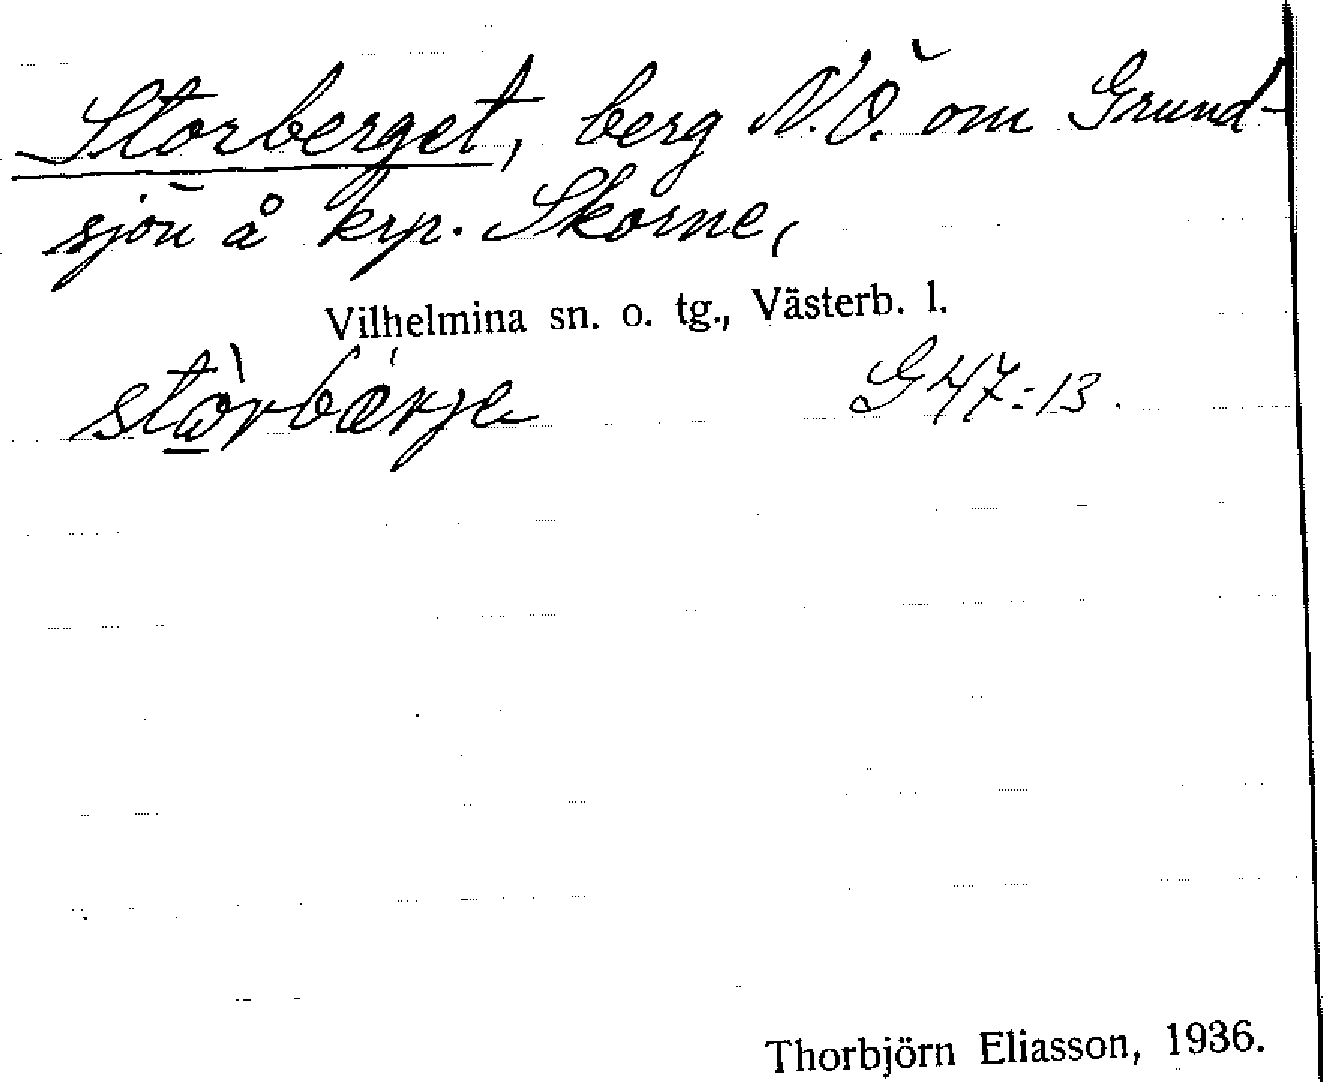 Storberget, berg N.Ö. om Grund-
sjön å krp. Skorne,
Vilhelmina sn. o. tg., Västerb. l.
G 47:13.
Thorbjörn Eliasson, 1936.